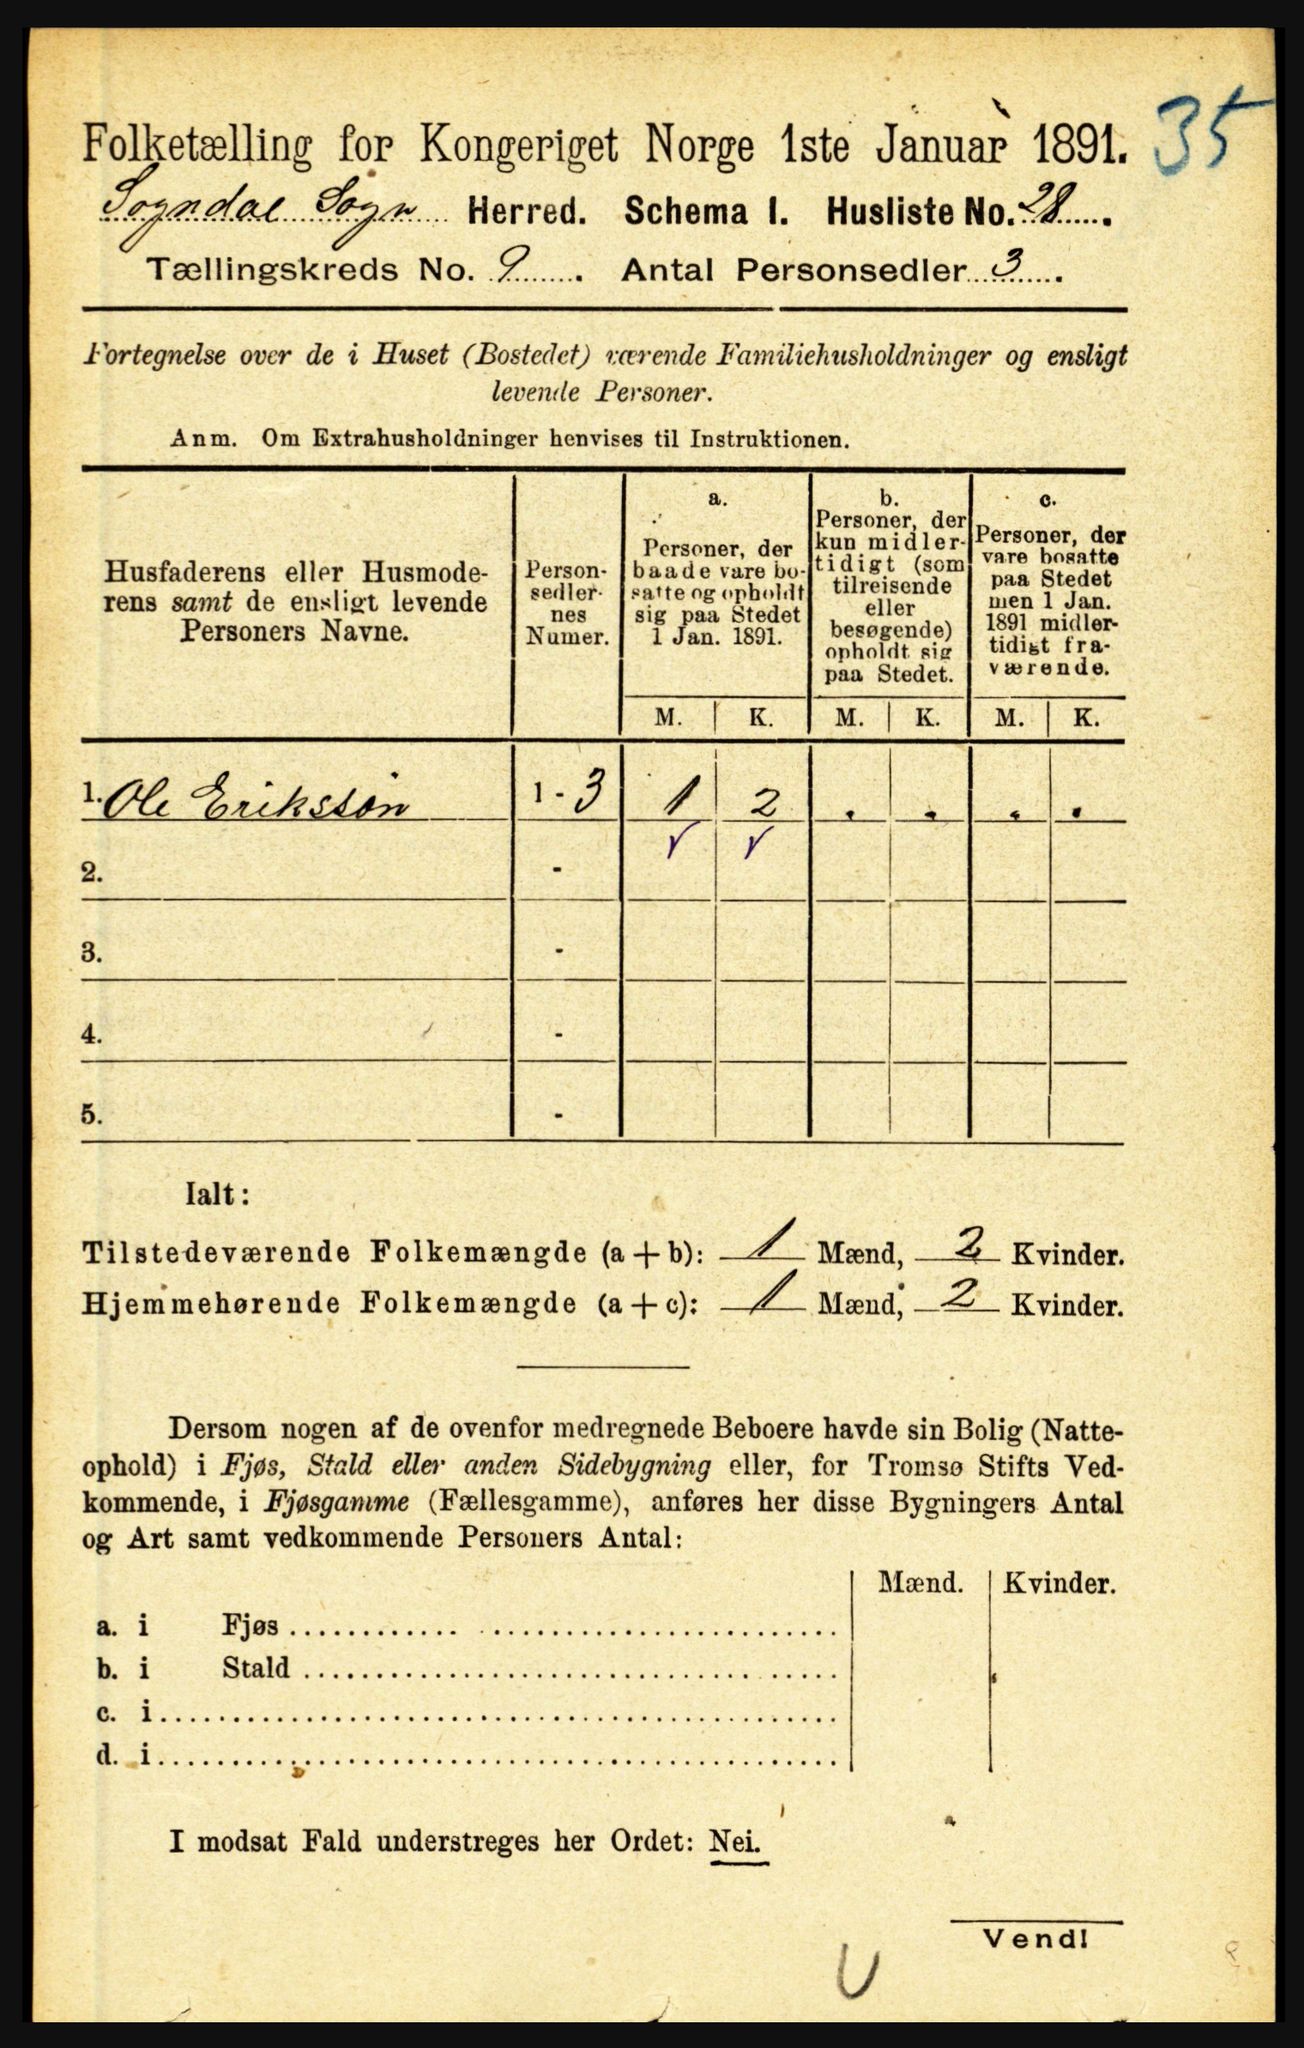 35
Folketælling for Kongeriget Norge 1ste Januar 1891.
Sogndal Sogn Herred. Schema I. Husliste No. 28.
Tællingskreds No. 9. Antal Personsedler 3.
Fortegnelse over de i Huset (Bostedet) værende Familiehusholdninger og ensligt
levende Personer.
Anm. Om Extrahusholdninger henvises til Instruktionen.
Husfaderens eller Husmode-
rens samt de ensligt levende
Personers Navne.
Person-
sedler-
nes
Numer.
a.
Personer, der
baade vare bo-
satte og opholdt
sig paa Stedet
1 Jan. 1891.
b.
Personer, der
kun midler-
tidigt (som
tilreisende
eller
besøgende)
opholdt sig
paa Stedet.
c.
Personer, der
vare bosatte
paa Stedet
men 1 Jan.
1891 midler-
tidigt fra-
værende.
M. K. M. K. M. K.
1. Ole Eriksson 1 - 3 1 2 . . . .
2. -
3. -
4. -
5. -
Ialt:
Tilstedeværende Folkemængde (a + b): 1 Mænd, 2 Kvinder.
Hjemmehørende Folkemængde (a + c): 1 Mænd, 2 Kvinder.
Dersom nogen af de ovenfor medregnede Beboere havde sin Bolig (Natte-
ophold) i Fjøs, Stald eller anden Sidebygning eller, for Tromsø Stifts Ved-
kommende, i Fjøsgamme (Fællesgamme), anføres her disse Bygningers Antal
og Art samt vedkommende Personers Antal:
Mænd. Kvinder.
a. i Fjøs
b. i Stald
c. i
d. i
I modsat Fald understreges her Ordet: Nei.
Vend!
U